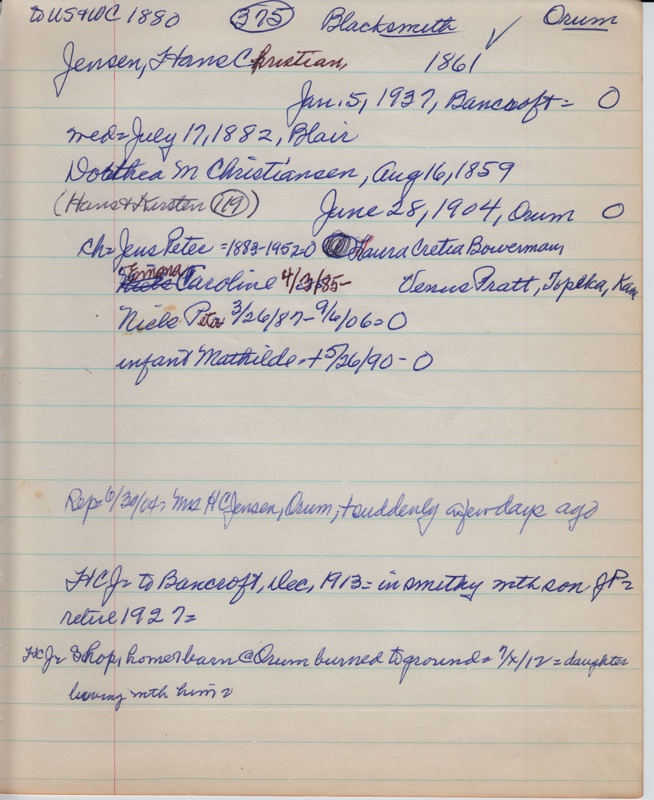 to US & WC 1880 375 Blacksmith ✓ Orum
Jensen, Hans Christian, 1861
Jan. 5, 1937, Bancroft = O
med = July 17, 1882, Blair
Dorthea M Christiansen, Aug 16, 1859
(Hans & Kirsten 119) June 28, 1904, Orum O
ch = Jens Peter = 1883-1952-O @ Laura Cretia Bowerman
Emma Caroline 4/3/85- Venus Pratt, Topeka, Kan
Niels Peter 3/26/87-9/6/06=O
infant Mathilde - + 5/26/90 - O
Rep = 6/30/04: Mrs HC Jensen, Orum, + suddenly a few days ago
HCJ = to Bancroft, Dec, 1913 = in smithy with son JP =
retire 1927 =
HCJ = Shop, home & barn @ Orum burned to ground = 7/x/12 = daughter
living with him =